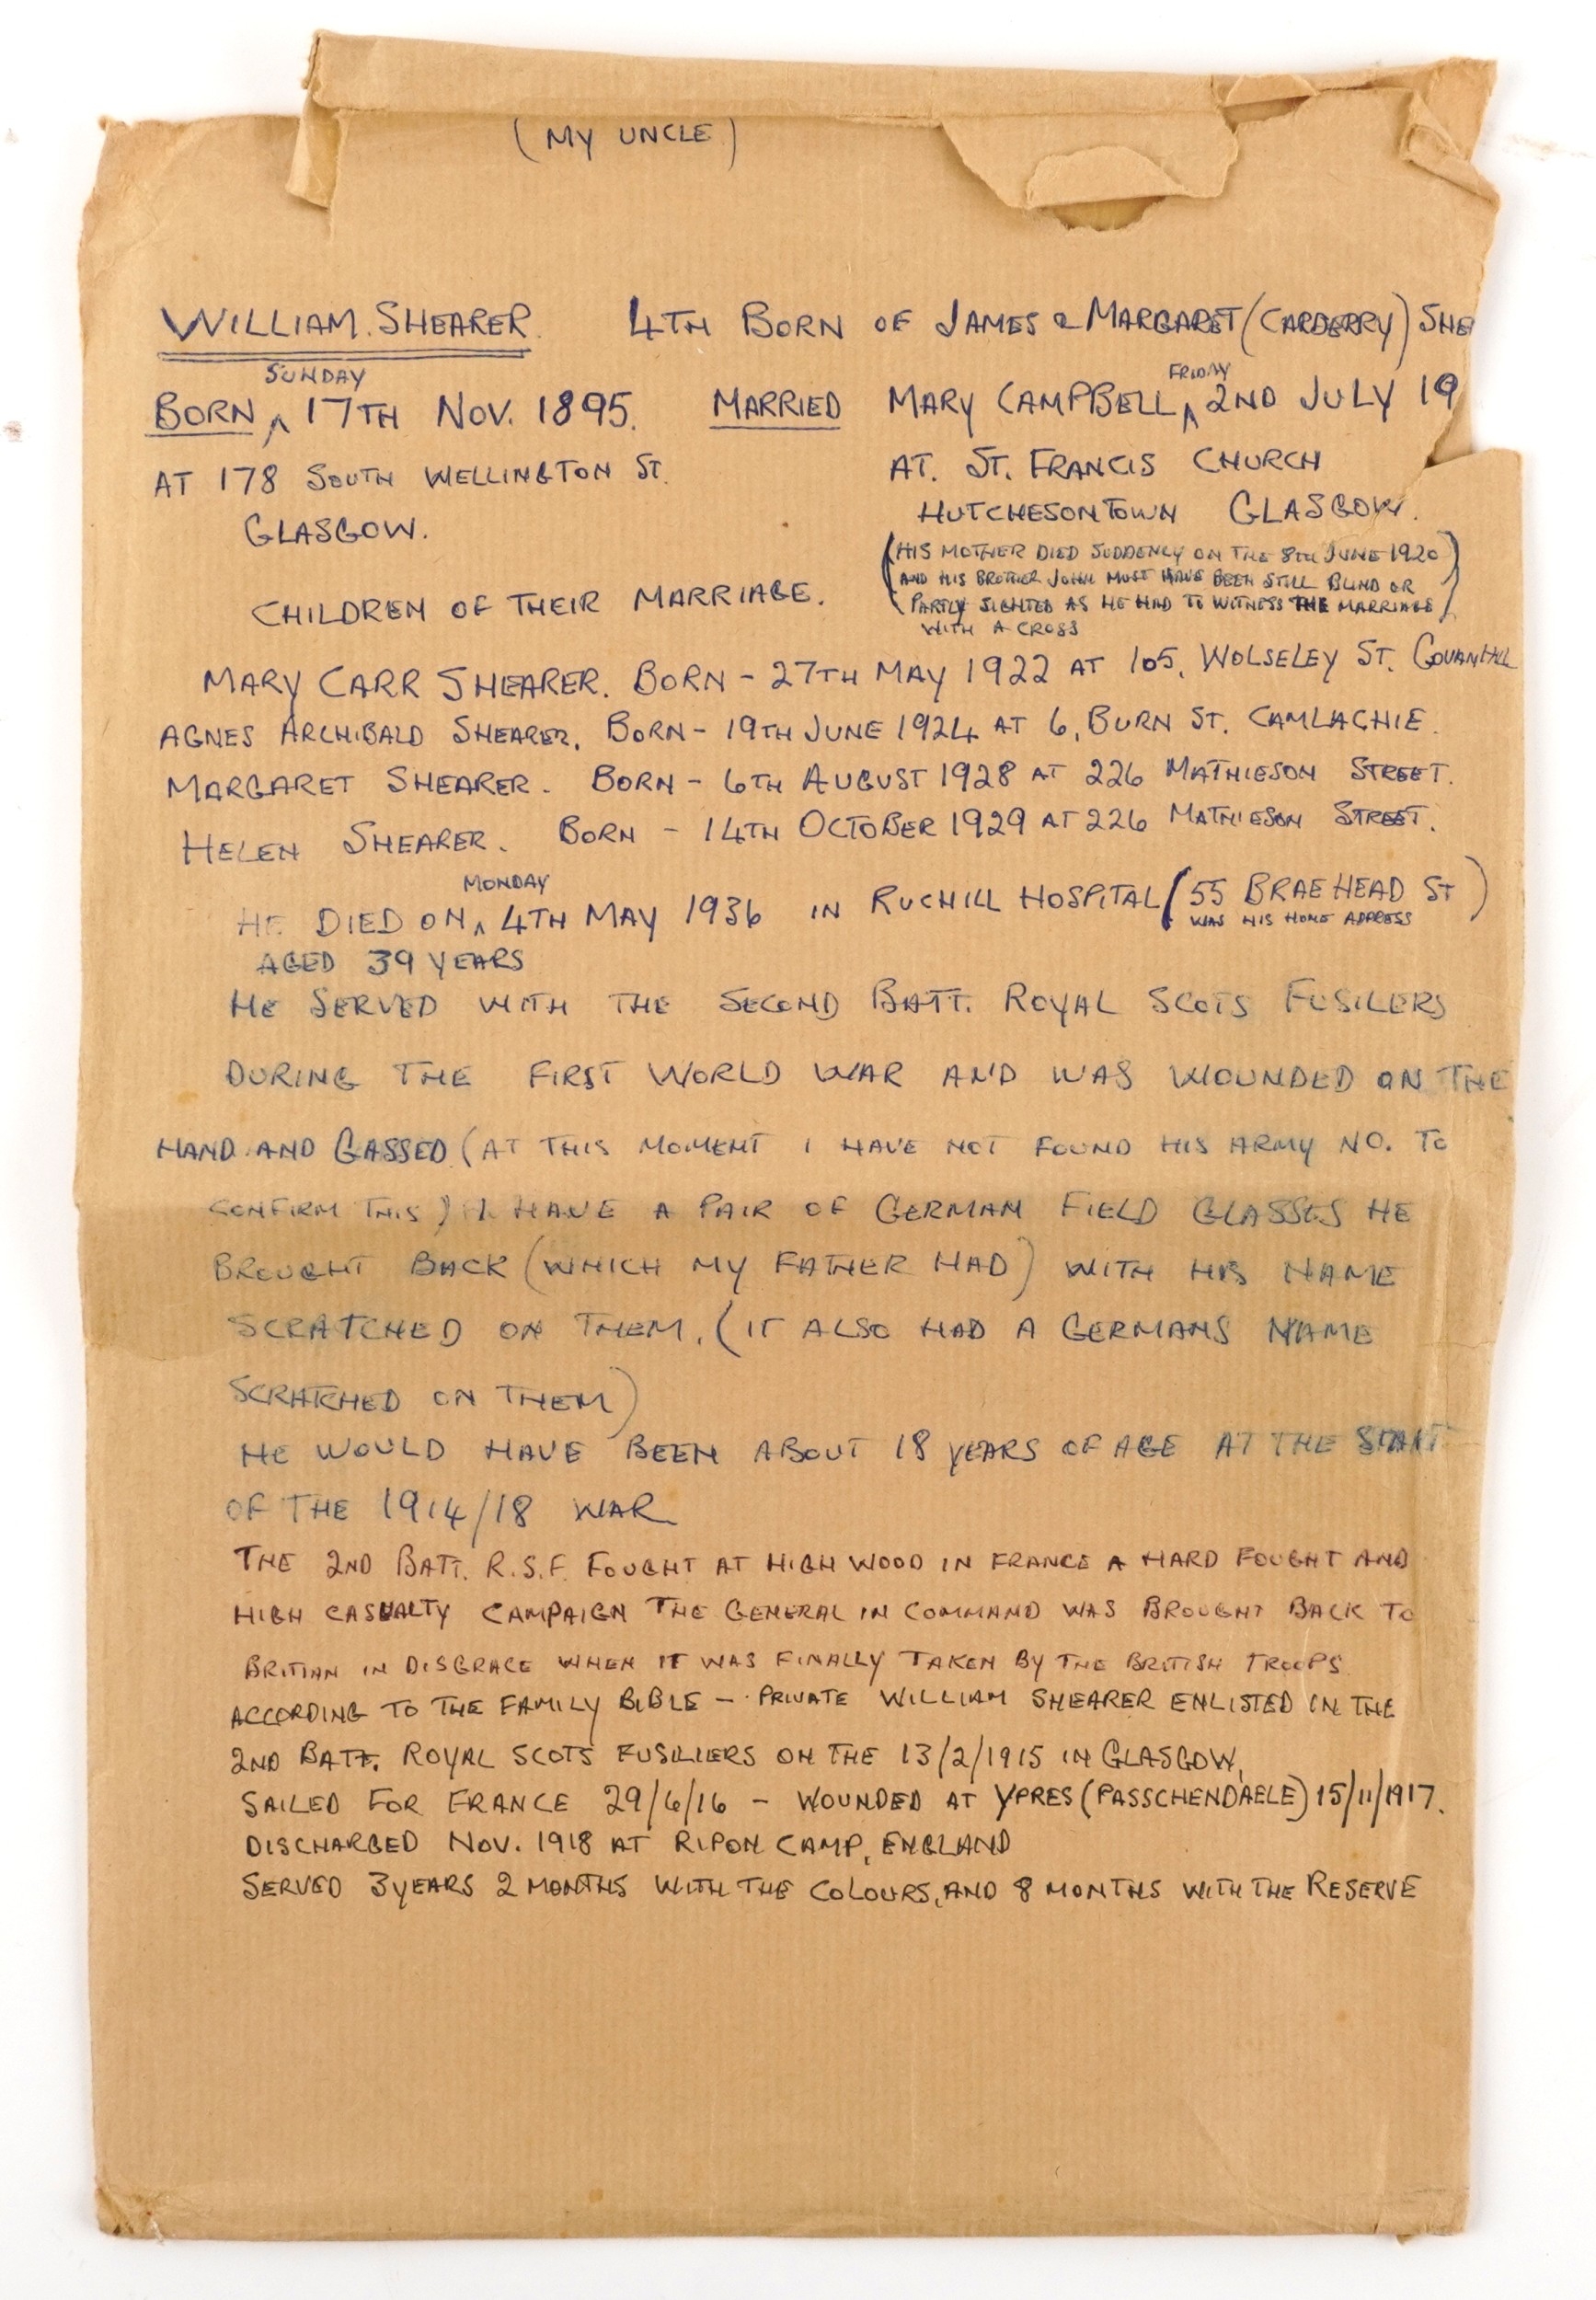 (MY UNCLE)
WILLIAM. SHEARER. 4TH BORN OF JAMES & MARGARET (CARDERRY) SHE
SUNDAY FRIDAY
BORN ^ 17TH NOV. 1895. MARRIED MARY CAMPBELL ^ 2ND JULY 19
AT 178 SOUTH WELLINGTON ST. AT. ST. FRANCIS CHURCH
GLASGOW. HUTCHESONTOWN GLASGOW.
(HIS MOTHER DIED SUDDENLY ON THE 8TH JUNE 1920)
AND HIS BROTHER JOHN MUST HAVE BEEN STILL BLIND OR
CHILDREN OF THEIR MARRIAGE. PARTLY SIGHTED AS HE HAD TO WITNESS THE MARRIAGE
WITH A CROSS
MARY CARR SHEARER. BORN - 27TH MAY 1922 AT 105, WOLSELEY ST. GOVANHILL
AGNES ARCHIBALD SHEARER. BORN - 19TH JUNE 1924 AT 6, BURN ST. CAMLACHIE.
MARGARET SHEARER. BORN - 6TH AUGUST 1928 AT 226 MATHIESON STREET.
HELEN SHEARER. BORN - 14TH OCTOBER 1929 AT 226 MATHIESON STREET.
MONDAY
HE DIED ON ^ 4TH MAY 1936 IN RUCHILL HOSPITAL (55 BRAEHEAD ST)
WAS HIS HOME ADDRESS
AGED 39 YEARS
HE SERVED WITH THE SECOND BATT. ROYAL SCOTS FUSILERS
DURING THE FIRST WORLD WAR AND WAS WOUNDED ON THE
HAND AND GASSED (AT THIS MOMENT I HAVE NOT FOUND HIS ARMY NO. TO
CONFIRM THIS) I HAVE A PAIR OF GERMAN FIELD GLASSES HE
BROUGHT BACK (WHICH MY FATHER HAD) WITH HIS NAME
SCRATCHED ON THEM. (IT ALSO HAD A GERMANS NAME
SCRATCHED ON THEM)
HE WOULD HAVE BEEN ABOUT 18 YEARS OF AGE AT THE START
OF THE 1914/18 WAR
THE 2ND BATT. R.S.F. FOUGHT AT HIGH WOOD IN FRANCE A HARD FOUGHT AND
HIGH CASUALTY CAMPAIGN THE GENERAL IN COMMAND WAS BROUGHT BACK TO
BRITIAN IN DISGRACE WHEN IT WAS FINALLY TAKEN BY THE BRITISH TROOPS
ACCORDING TO THE FAMILY BIBLE - PRIVATE WILLIAM SHEARER ENLISTED IN THE
2ND BATT. ROYAL SCOTS FUSILIERS ON THE 13/2/1915 IN GLASGOW,
SAILED FOR FRANCE 29/6/16 - WOUNDED AT YPRES (PASSCHENDAELE) 15/11/1917.
DISCHARGED NOV. 1918 AT RIPON CAMP, ENGLAND
SERVED 3 YEARS 2 MONTHS WITH THE COLOURS, AND 8 MONTHS WITH THE RESERVE